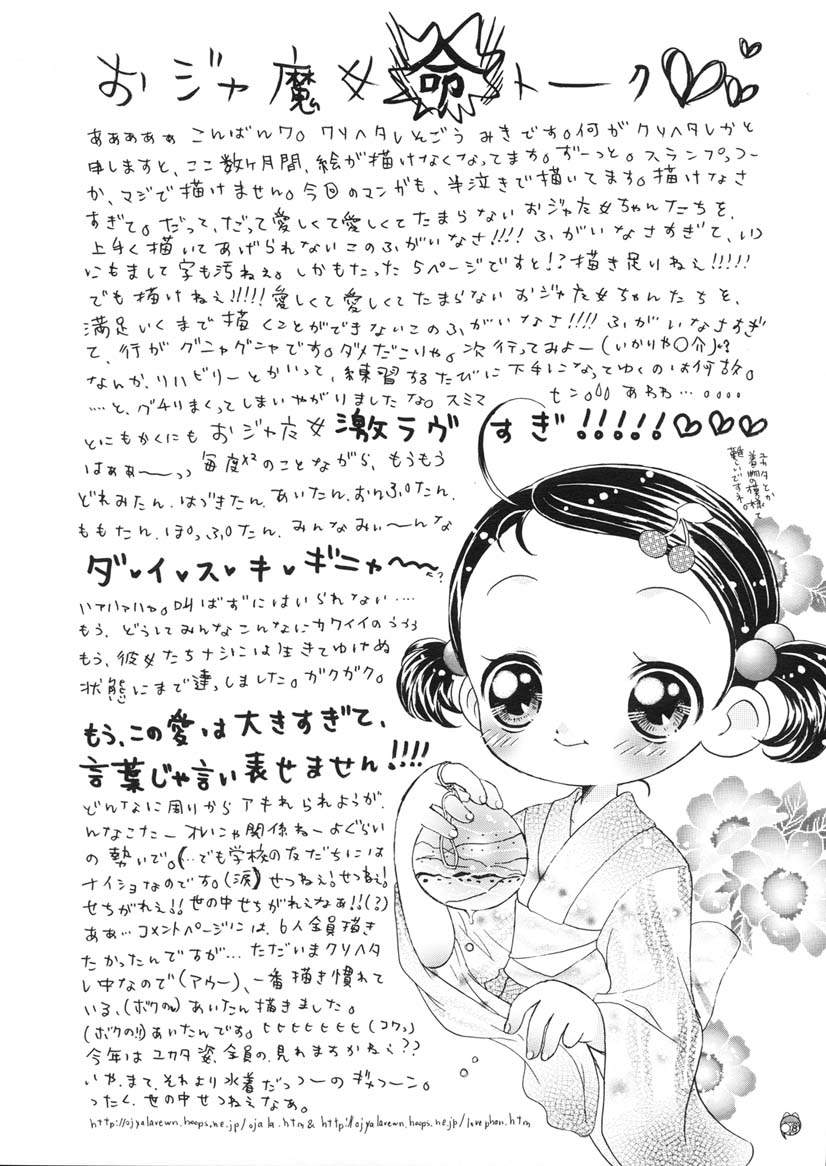 おジャ魔女命トーク
ああぁぁぁ こんばんワ。クリヘタレそごう みきです。何がクリヘタレかと
申しますと、ここ数ヶ月間、絵が描けなくなってます。ずーっと。スランプっつー
か、マジで描けません。今回のマンガも、半泣きで描いてます。描けなさ
すぎて。だって、だって愛しくて愛しくてたまらない おジャ魔女ちゃんたちを、
上手く描いてあげられないこのふがいなさ!!!! ふがいなさすぎて、いつ
にもまして字も汚ねぇ。しかもたった5ページですと!? 描き足りねえ!!!!!
でも描けねえ!!!!! 愛しくて愛しくてたまらない おジャ魔女ちゃんたちを、
満足いくまで描くことができないこのふがいなさ!!!! ふがいなさすぎ
て、行がグニャグニャです。ダメだこりゃ。次行ってみよー(いかりや〇介)
なんか、リハビリーとかいって、練習するたびに下手になってゆくのは何故。
……と、グチりまくってしまいやがりましたな。スミマセン。。。あわわ…。。。。
とにもかくにも おジャ魔女 激ラヴ すぎ!!!!!♡♡♡
はぁぁ〜〜っっ 毎度のことながら、もうもう
どれみたん、はづきたん、あいたん、おんぷたん、
ももたん、ぽっぷたん、みんなみぃ〜んな
ダ・イ・ス・キ・ギニャ〜〜
ハァハァハァ。叫ばずにはいられない……
もう、どうしてみんなこんなにカワイイのううう
もう、彼女たちナシには生きてゆけぬ
状態にまで達っしました。ガクガク。
もう、この愛は大きすぎて、
言葉じゃ言い表せません!!!!
どんなに周りからアキれられようが、
んなこたーオレにゃ関係ねーよぐらい
の勢いで。(…でも学校の友だちには
ナイショなのです。(涙)) せつねえ! せつねえ!
せちがれえ!! 世の中せちがれえなぁ!!(?)
ああ… コメントページには、6人全員描き
たかったんですが… ただいまクリヘタ
レ中なので(アウー)、一番描き慣れて
いる、(ボクの)あいたん描きました。
(ボクの!!)あいたんです。ヒヒヒヒヒヒ(コワッ)
今年はユカタ姿、全員の、見れますかねえ??
いや、まて、それより水着だっつーのギャフーン。
ったく、世の中せつねえなぁ。
http://ojyalavewn.hoops.ne.jp/ojala.htm & http://ojyalavewn.hoops.ne.jp/lovephon.htm
ユカタとか
着物の模様て
難しいですネ。